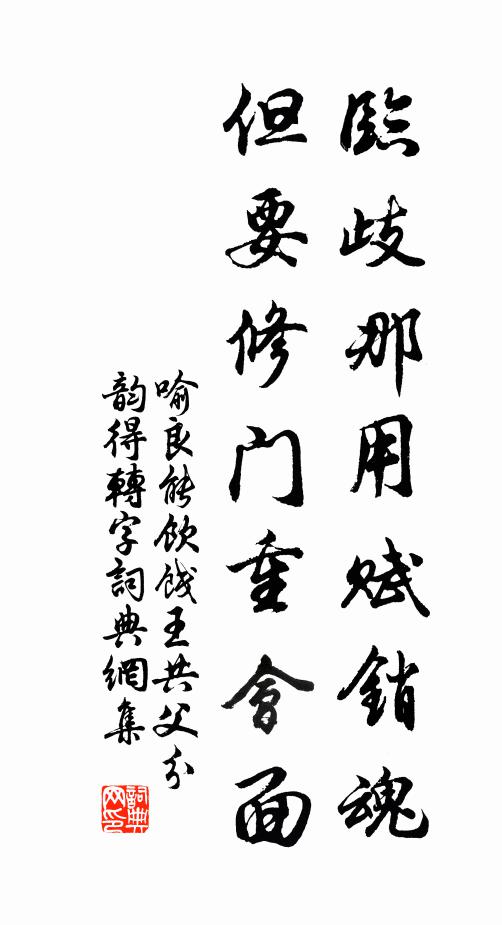 臨歧那用賦銷魂
但要修門重會面
喻良能飲餞王共父分
韵得轉字詞典網集
詞典网印